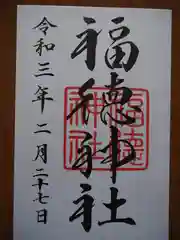 福徳神社
令和三年二月二十七日
福徳神社